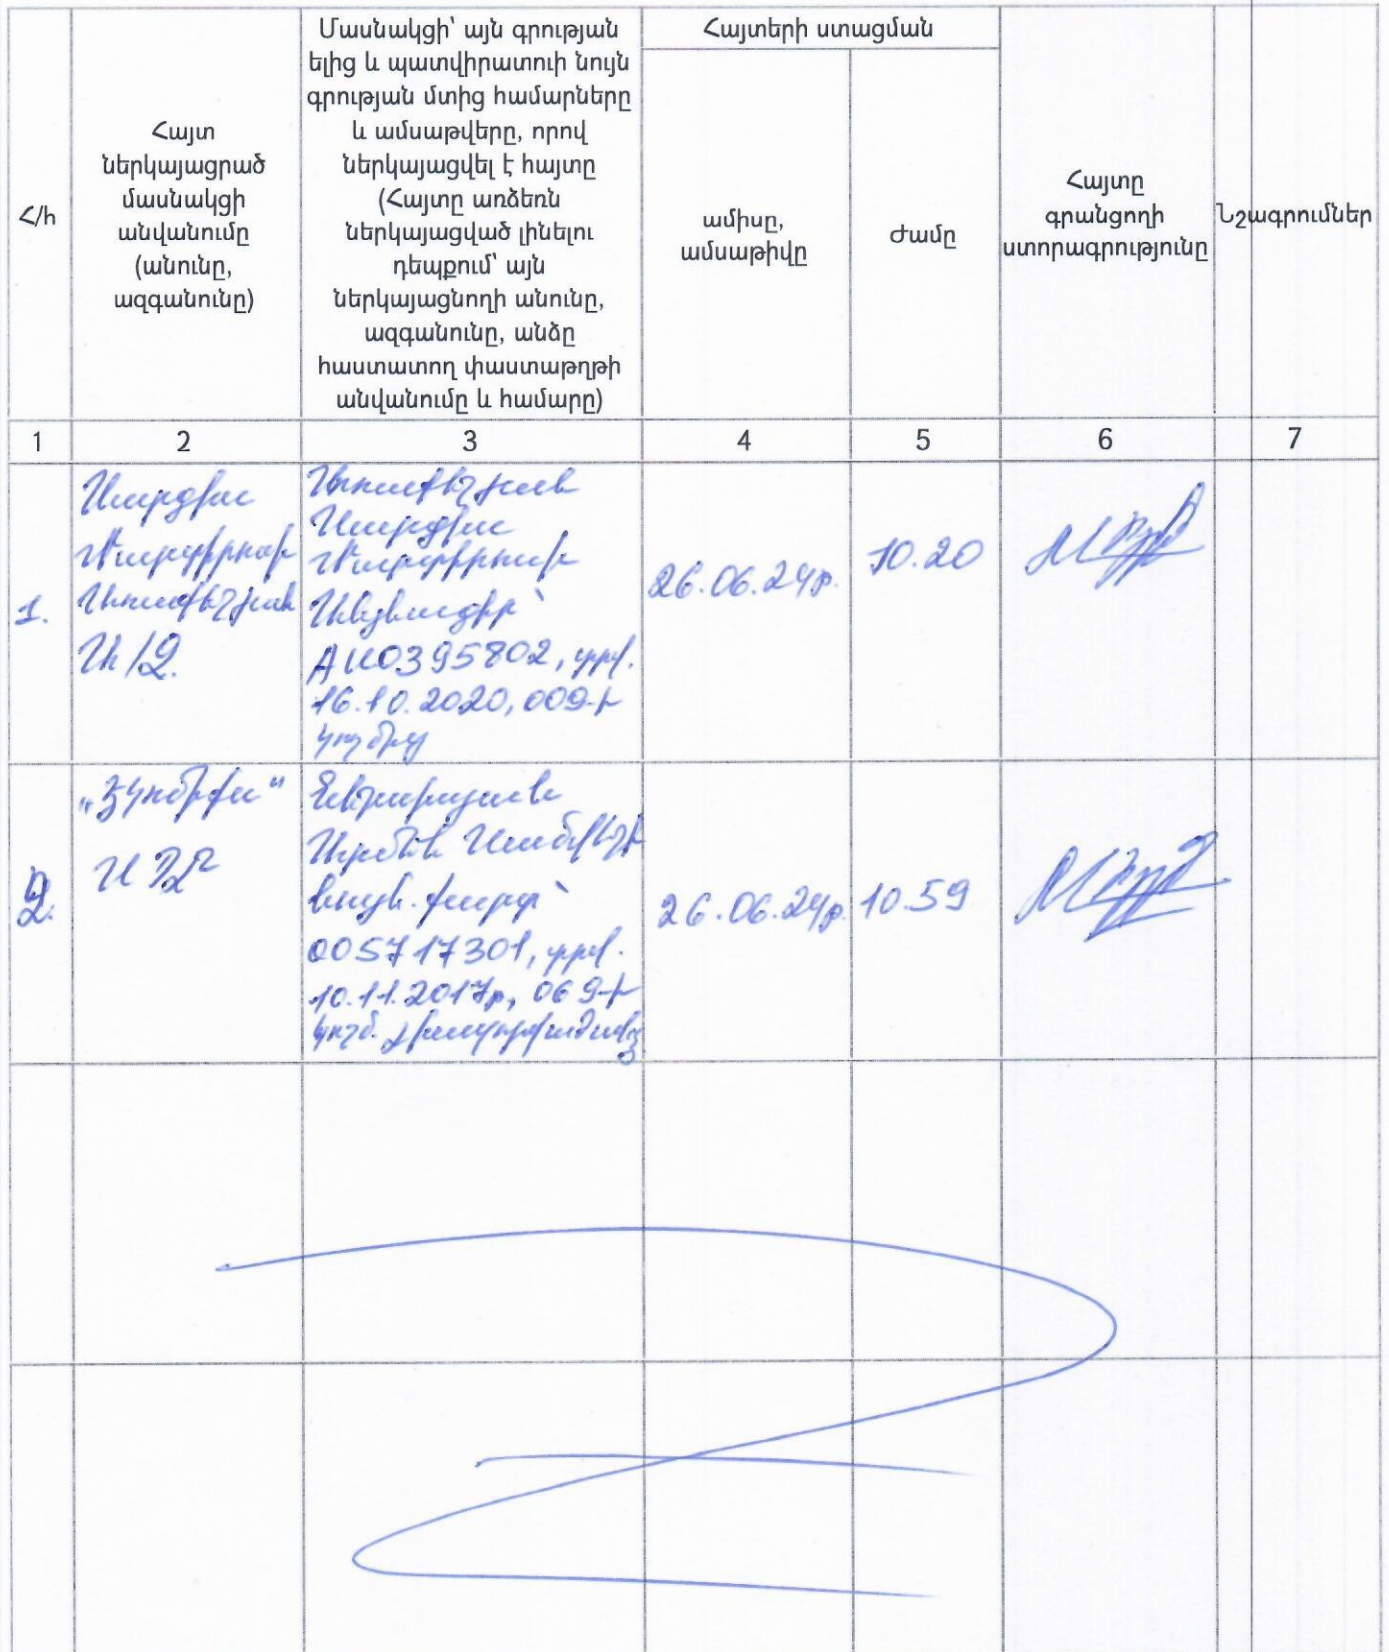 Հ/հ
Հայտ
ներկայացրած
մասնակցի
անվանումը
(անունը,
ազգանունը)
Մասնակցի՝ այն գրության
ելից և պատվիրատուի նույն
գրության մտից համարները
և ամսաթվերը, որով
ներկայացվել է հայտը
(Հայտը առձեռն
ներկայացված լինելու
դեպքում՝ այն
ներկայացնողի անունը,
ազգանունը, անձը
հաստատող փաստաթղթի
անվանումը և համարը)
Հայտերի ստացման
ամիսը,
ամսաթիվը
ժամը
Հայտը
գրանցողի
ստորագրությունը
Նշագրումներ
1 2 3 4 5 6 7
1.
Սարգիս
Մարտիրոսի
Առաքելյան
Ա/Ձ
Առաքելյան
Սարգիս
Մարտիրոսի
Անձնագիր՝
AU0395802, տրվ.
16.10.2020, 009-ի
կողմից
26.06.24թ.
10.20
2.
"Էկոմիքս"
ՍՊԸ
Արմեն Սամվելի
նույն. քարտ՝
005717301, տրվ.
10.11.2017թ, 069-ի
կողմ. լիազորվածանձ
26.06.24թ.
10.59